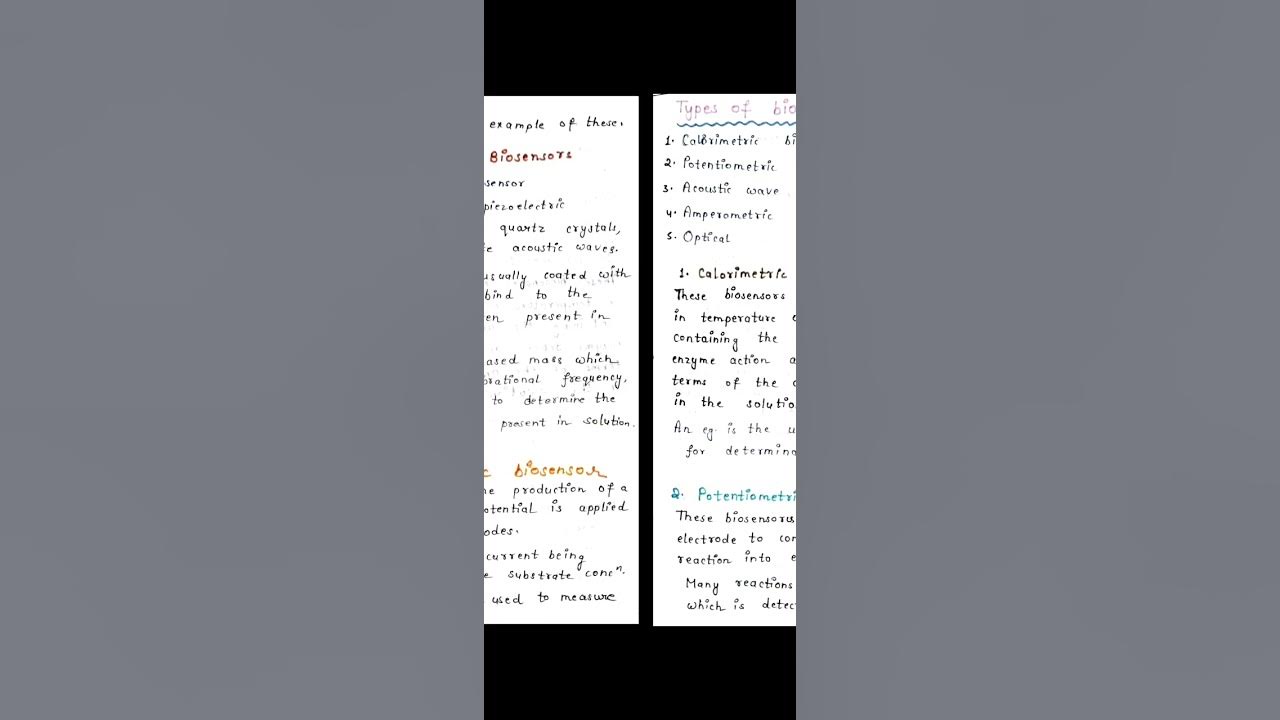 example of these.
Biosensors
sensor
piezoelectric
quartz crystals,
acoustic waves.
usually coated with
bind to the
en present in
ased mass which
brational frequency,
to determine the
present in solution.
c biosensor
production of a
otential is applied
odes.
current being
e substrate concⁿ.
used to measure
Types of bio
1. Calorimetric bi
2. Potentiometric
3. Acoustic wave
4. Amperometric
5. Optical
1. Calorimetric
These biosensors
in temperature
containing the
enzyme action a
terms of the
in the solutio
An eg. is the u
for determina
2. Potentiometri
These biosensors
electrode to con
reaction into e
Many reactions
which is detec